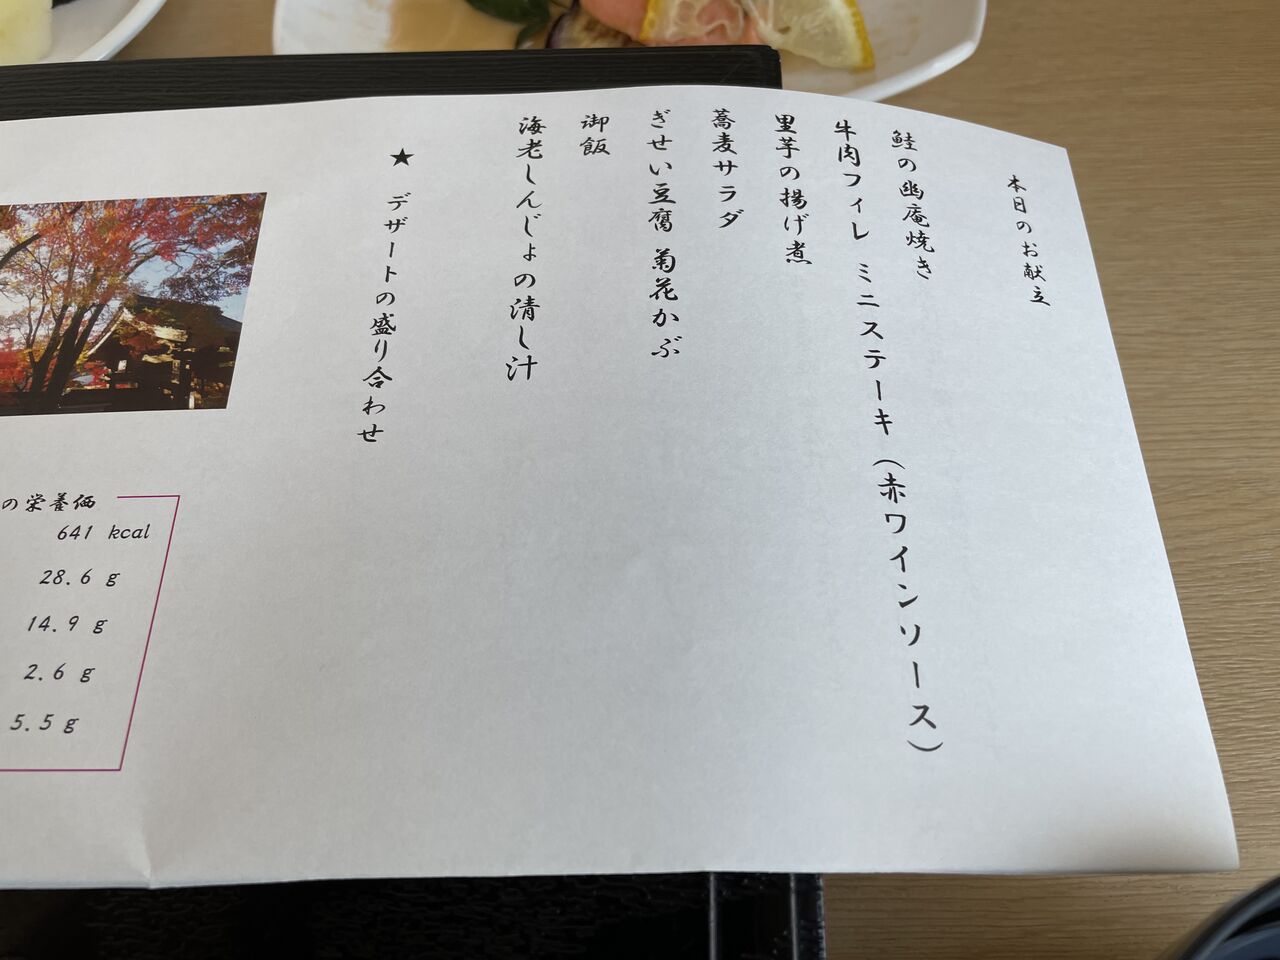 本日のお献立
鮭の幽庵焼き
牛肉フィレ ミニステーキ（赤ワインソース）
里芋の揚げ煮
蕎麦サラダ
ぎせい豆腐 菊花かぶ
御飯
海老しんじょの清し汁
★ デザートの盛り合わせ
の栄養価
641 kcal
28.6 g
14.9 g
2.6 g
5.5 g